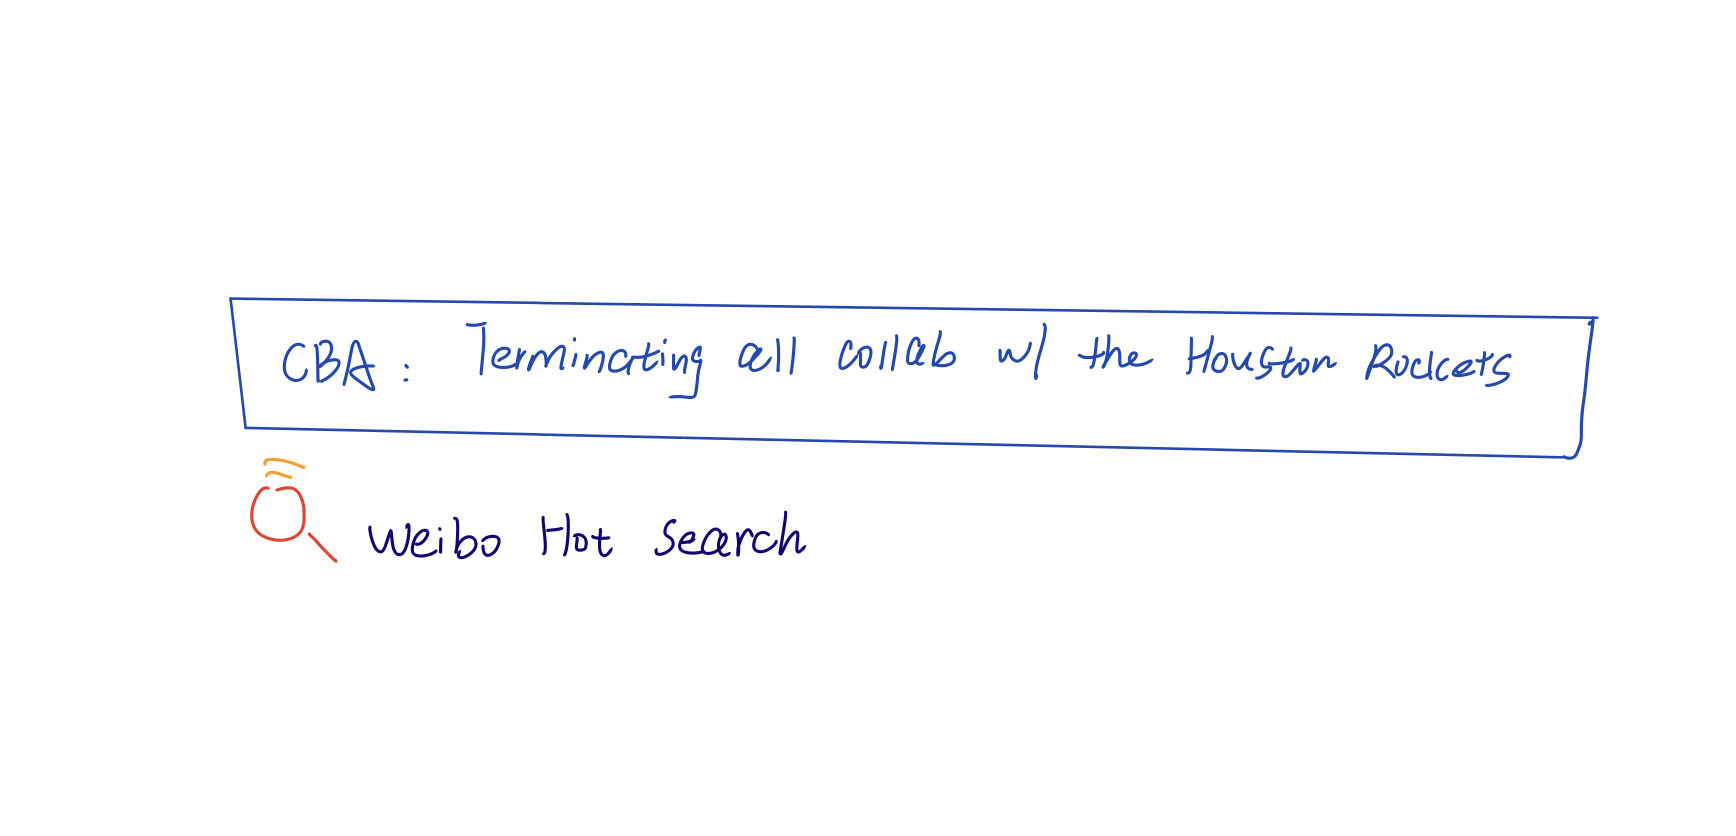 CBA: Terminating all collab w/ the Houston Rockets
Weibo Hot Search